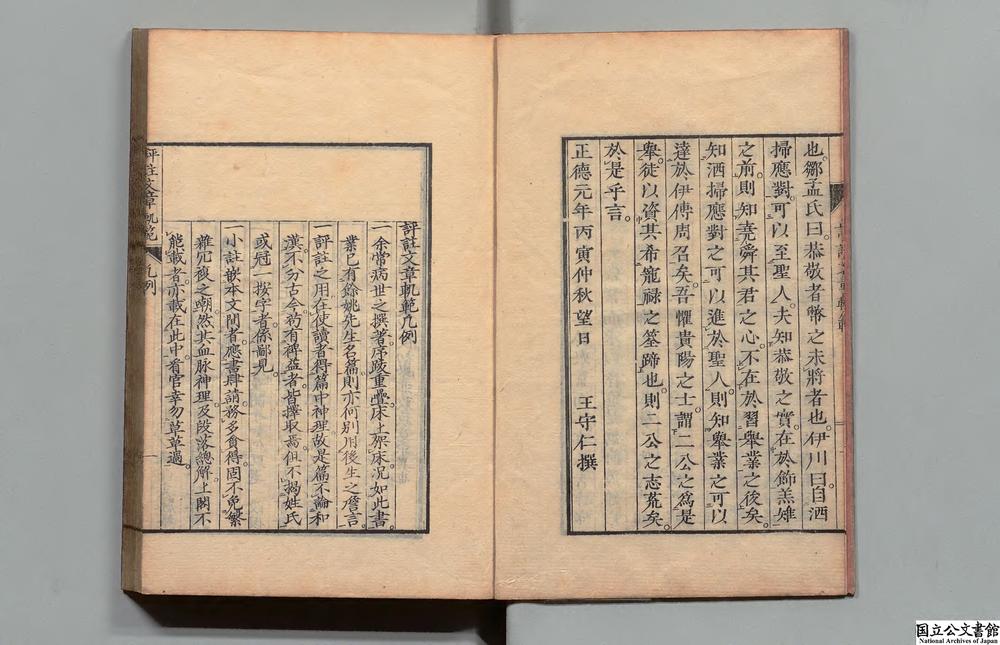 也鄒孟氏曰恭敬者幣之未將者也伊川曰自洒
掃應對可以至聖人夫知恭敬之實在於飾羔雉
之前則知堯舜其君之心不在於習舉業之後矣
知洒掃應對之可以進於聖人則知舉業之可以
達於伊傅周召矣吾懼貴陽之士謂二公之爲是
舉徒以資其希寵祿之筌蹄也則二公之志荒矣
於是乎言
正德元年丙寅仲秋望日 王守仁撰
評註文章軌範凡例
一余常病世之撰著序跋重疊床上架床况如此書
業已有餘姚先生名篇則亦何別用後生之詹言
一評註之用在使讀者得篇中神理故是篇不論和
漢不分古今苟有裨益者皆擇取焉但不揭姓氏
或冠一按字者係鄙見
一小註嵌本文間者應書肆請務多貪得固不免繁
雜冗複之嘲然其血脉神理及段落總解上闌不
能載者亦載在此中看官幸勿草草過
評註文章軌範 凡例 一
国立公文書館
National Archives of Japan